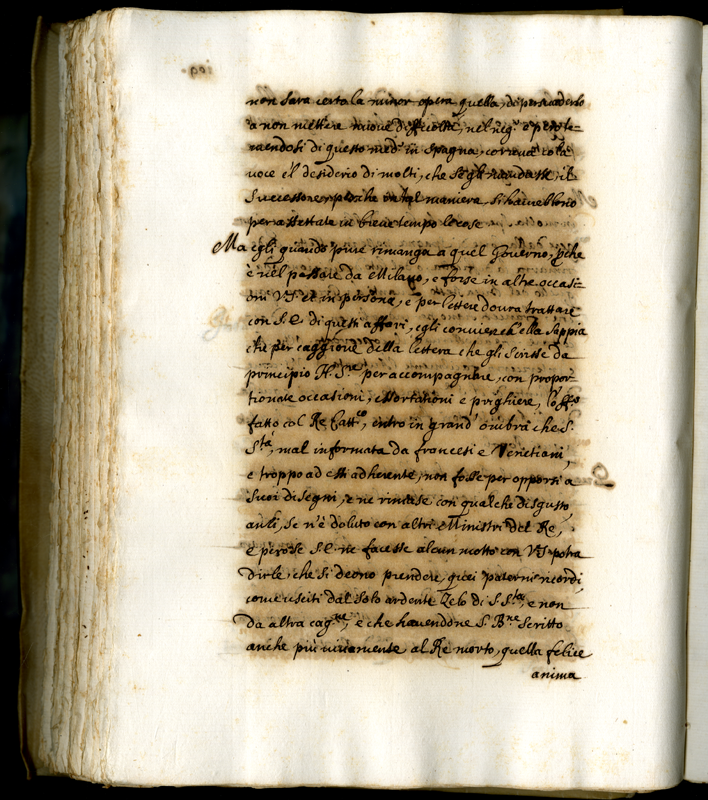 non sara certo la minor opera quella, di persuaderlo
a non mettere nuove difficoltà, nel neg.o e però te-
nendosi di questo med.o in Spagna, correva colà
voce e'l desiderio di molti, che se gli mandasse il
Successore, poiche in tal maniera si haverebbono
per assettate in breve tempo le cose
Ma egli quando pure rimanga a quel Governo, pche
e nel passare da Milano, e forse in altre occasi-
oni VS. et in persona, e per lettere dovra trattare
con S.E. di questi affari, egli conviene ch'ella Sappia
che per caggione della lettera che gli Scrisse da
principio N. S.re per accompagnare, con propor-
tionate occasioni, essortationi e prighiere, l'off.o
fatto col Re Catt.co, entro in grand' ombra che S.
S.tà, mal informata da francesi e Venetiani,
e troppo ad essi adherente, non fosse per opporsi a
Suoi disegni, e ne rimase con qualche disgusto
anzi, se n'è doluto con altri Ministri del Re,
e però se S.E. ne facesse alcun motto con VS. potra
dirle, che si deono prendere, quei paterni ricordi,
come usciti dal solo ardente Zelo di S. S.tà, e non
da altra cag.ne, e che havendone S. B.ne Scritto
anche più vivamente al Re morto, quella felice
anima